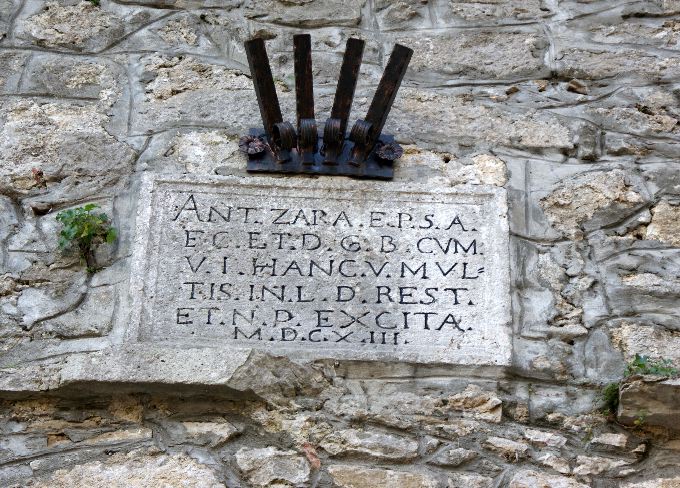 ANT. ZARA. E.P.S.A.
E.C.ET.D.G.B.CVM.
V.I.HANC.V.MVL=
TIS.IN.L.D.REST.
ET.N.P.EXCITA.
M.D.C.X.III.